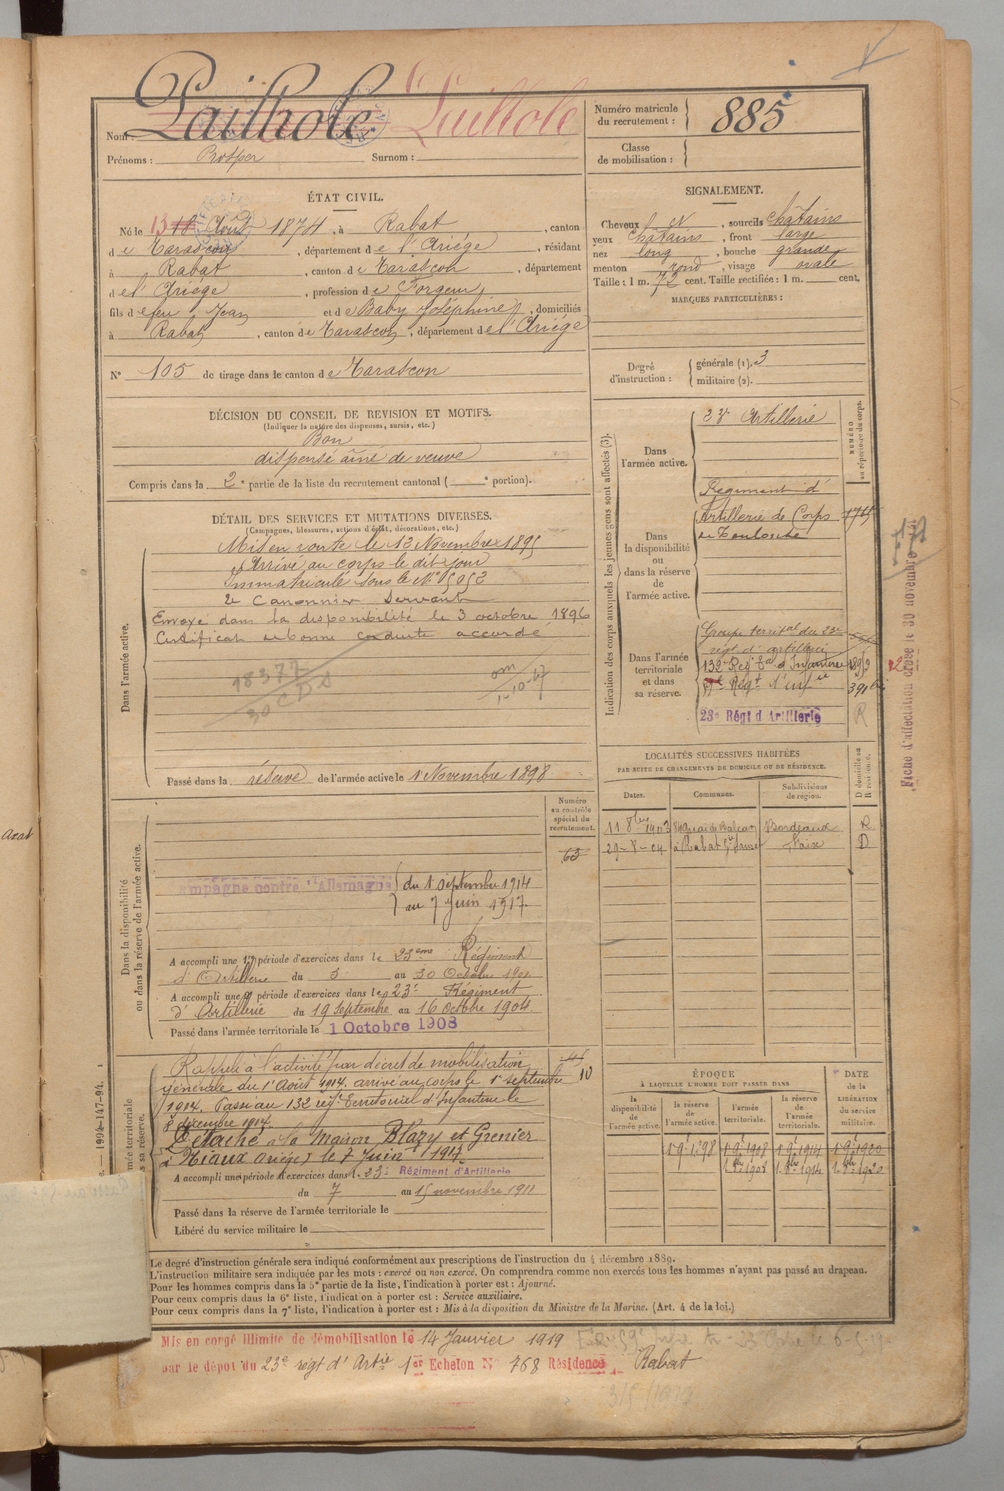 Nom : Pailhole Pailhole
Prénoms : Prosper Surnom :
Numéro matricule
du recrutement : 885
Classe
de mobilisation :
ÉTAT CIVIL.
Né le 13 18 Août 1874, à Rabat, canton
de Tarascon, département de l'Ariège, résidant
à Rabat, canton de Tarascon, département
de l'Ariège, profession de Forgeur,
fils de feu Jean et de Baby Joséphine, domiciliés
à Rabat, canton de Tarascon, département de l'Ariège
N° 105 de tirage dans le canton de Tarascon
SIGNALEMENT.
Cheveux chat N, sourcils châtains
yeux châtains, front large
nez long, bouche grande
menton rond, visage ovale
Taille : 1 m. 72 cent. Taille rectifiée : 1 m. cent.
MARQUES PARTICULIÈRES :
Degré
d'instruction :
générale (1). 3
militaire (2).
DÉCISION DU CONSEIL DE REVISION ET MOTIFS.
(Indiquer la nature des dispenses, sursis, etc.)
Bon
dispensé aîné de veuve
Compris dans la 2e partie de la liste du recrutement cantonal ( e portion).
DÉTAIL DES SERVICES ET MUTATIONS DIVERSES.
(Campagnes, blessures, actions d'éclat, décorations, etc.)
Dans l'armée active.
Mis en route le 13 Novembre 1895
Arrivé au corps le dit jour
Immatriculé sous le N° 5052
2e Canonnier Servant
Envoyé dans la disponibilité le 3 octobre 1896
Certificat de bonne conduite accordé
18377
Passé dans la réserve de l'armée active le 1 Novembre 1898
Indication des corps auxquels les jeunes gens sont affectés (3).
NUMÉRO
au répertoire du corps.
Dans
l'armée active.
23e Artillerie
Dans
la disponibilité
ou
dans la réserve
de
l'armée active.
Régiment d'
Artillerie de Corps
de Toulouse
Dans l'armée
territoriale
et dans
sa réserve.
Groupe territal du 23e
régt d'artillerie
132e Régt tal d'Infanterie
Régt d'infie
23e Régt d'Artillerie
R
Fiche d'affectation du 30 novembre
LOCALITÉS SUCCESSIVES HABITÉES
PAR SUITE DE CHANGEMENTS DE DOMICILE OU DE RÉSIDENCE.
D domicile ou
R résidence.
Dates. Communes. Subdivisions
de région.
11 8bre 1903 Bordeaux R
29-8-04 à Rabat Foix D
Numéro
au contrôle
spécial du
recrutement.
63
Dans la disponibilité
ou dans la réserve de l'armée active.
Campagne contre l'Allemagne du 1 septembre 1914
au 7 juin 1917
A accompli une 1re période d'exercices dans le 23eme Régiment
d'Artillerie du 3 au 30 Octobre 1901
A accompli une 2e période d'exercices dans le 23e Régiment
d'Artillerie du 19 Septembre au 16 octobre 1904
Passé dans l'armée territoriale le 1 Octobre 1908
Rappelé à l'activité par décret de mobilisation
générale du 1 Août 1914. arrivé au corps le 1er septembre
1914. Passé au 132e régt Territorial d'Infanterie le
8 décembre 1914
Détaché à la Maison Blazy et Grenier
à Niaux Ariège le 7 Juin 1917
A accompli une période d'exercices dans le 23e Régiment d'Artillerie
du 7 au 15 novembre 1911
Passé dans la réserve de l'armée territoriale le
Libéré du service militaire le
10
ÉPOQUE
À LAQUELLE L'HOMME DOIT PASSER DANS
DATE
de la
LIBÉRATION
du service
militaire.
la
disponibilité
de
l'armée active.
la réserve
de
l'armée active.
l'armée
territoriale.
la réserve
de
l'armée
territoriale.
1 9bre 98 1 9bre 1908 1 9bre 1914 1 9bre 1920
1 8bre 1908 1 8bre 1914 1 8bre 1920
Le degré d'instruction générale sera indiqué conformément aux prescriptions de l'instruction du 4 décembre 1889.
L'instruction militaire sera indiquée par les mots : exercé ou non exercé. On comprendra comme non exercés tous les hommes n'ayant pas passé au drapeau.
Pour les hommes compris dans la 5e partie de la liste, l'indication à porter est : Ajourné.
Pour ceux compris dans la 6e liste, l'indication à porter est : Service auxiliaire.
Pour ceux compris dans la 7e liste, l'indication à porter est : Mis à la disposition du Ministre de la Marine. (Art. 4 de la loi.)
Mis en congé illimité de démobilisation le 14 Janvier 1919
par le dépot du 23e régt d'Artie 1er Echelon N° 768 Résidence Rabat
1994-147-94.